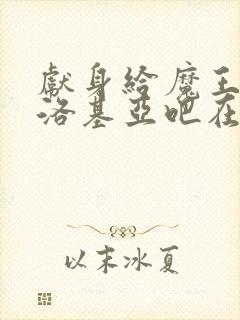 獻身給魔王
洛基亞吧在
以末冰夏